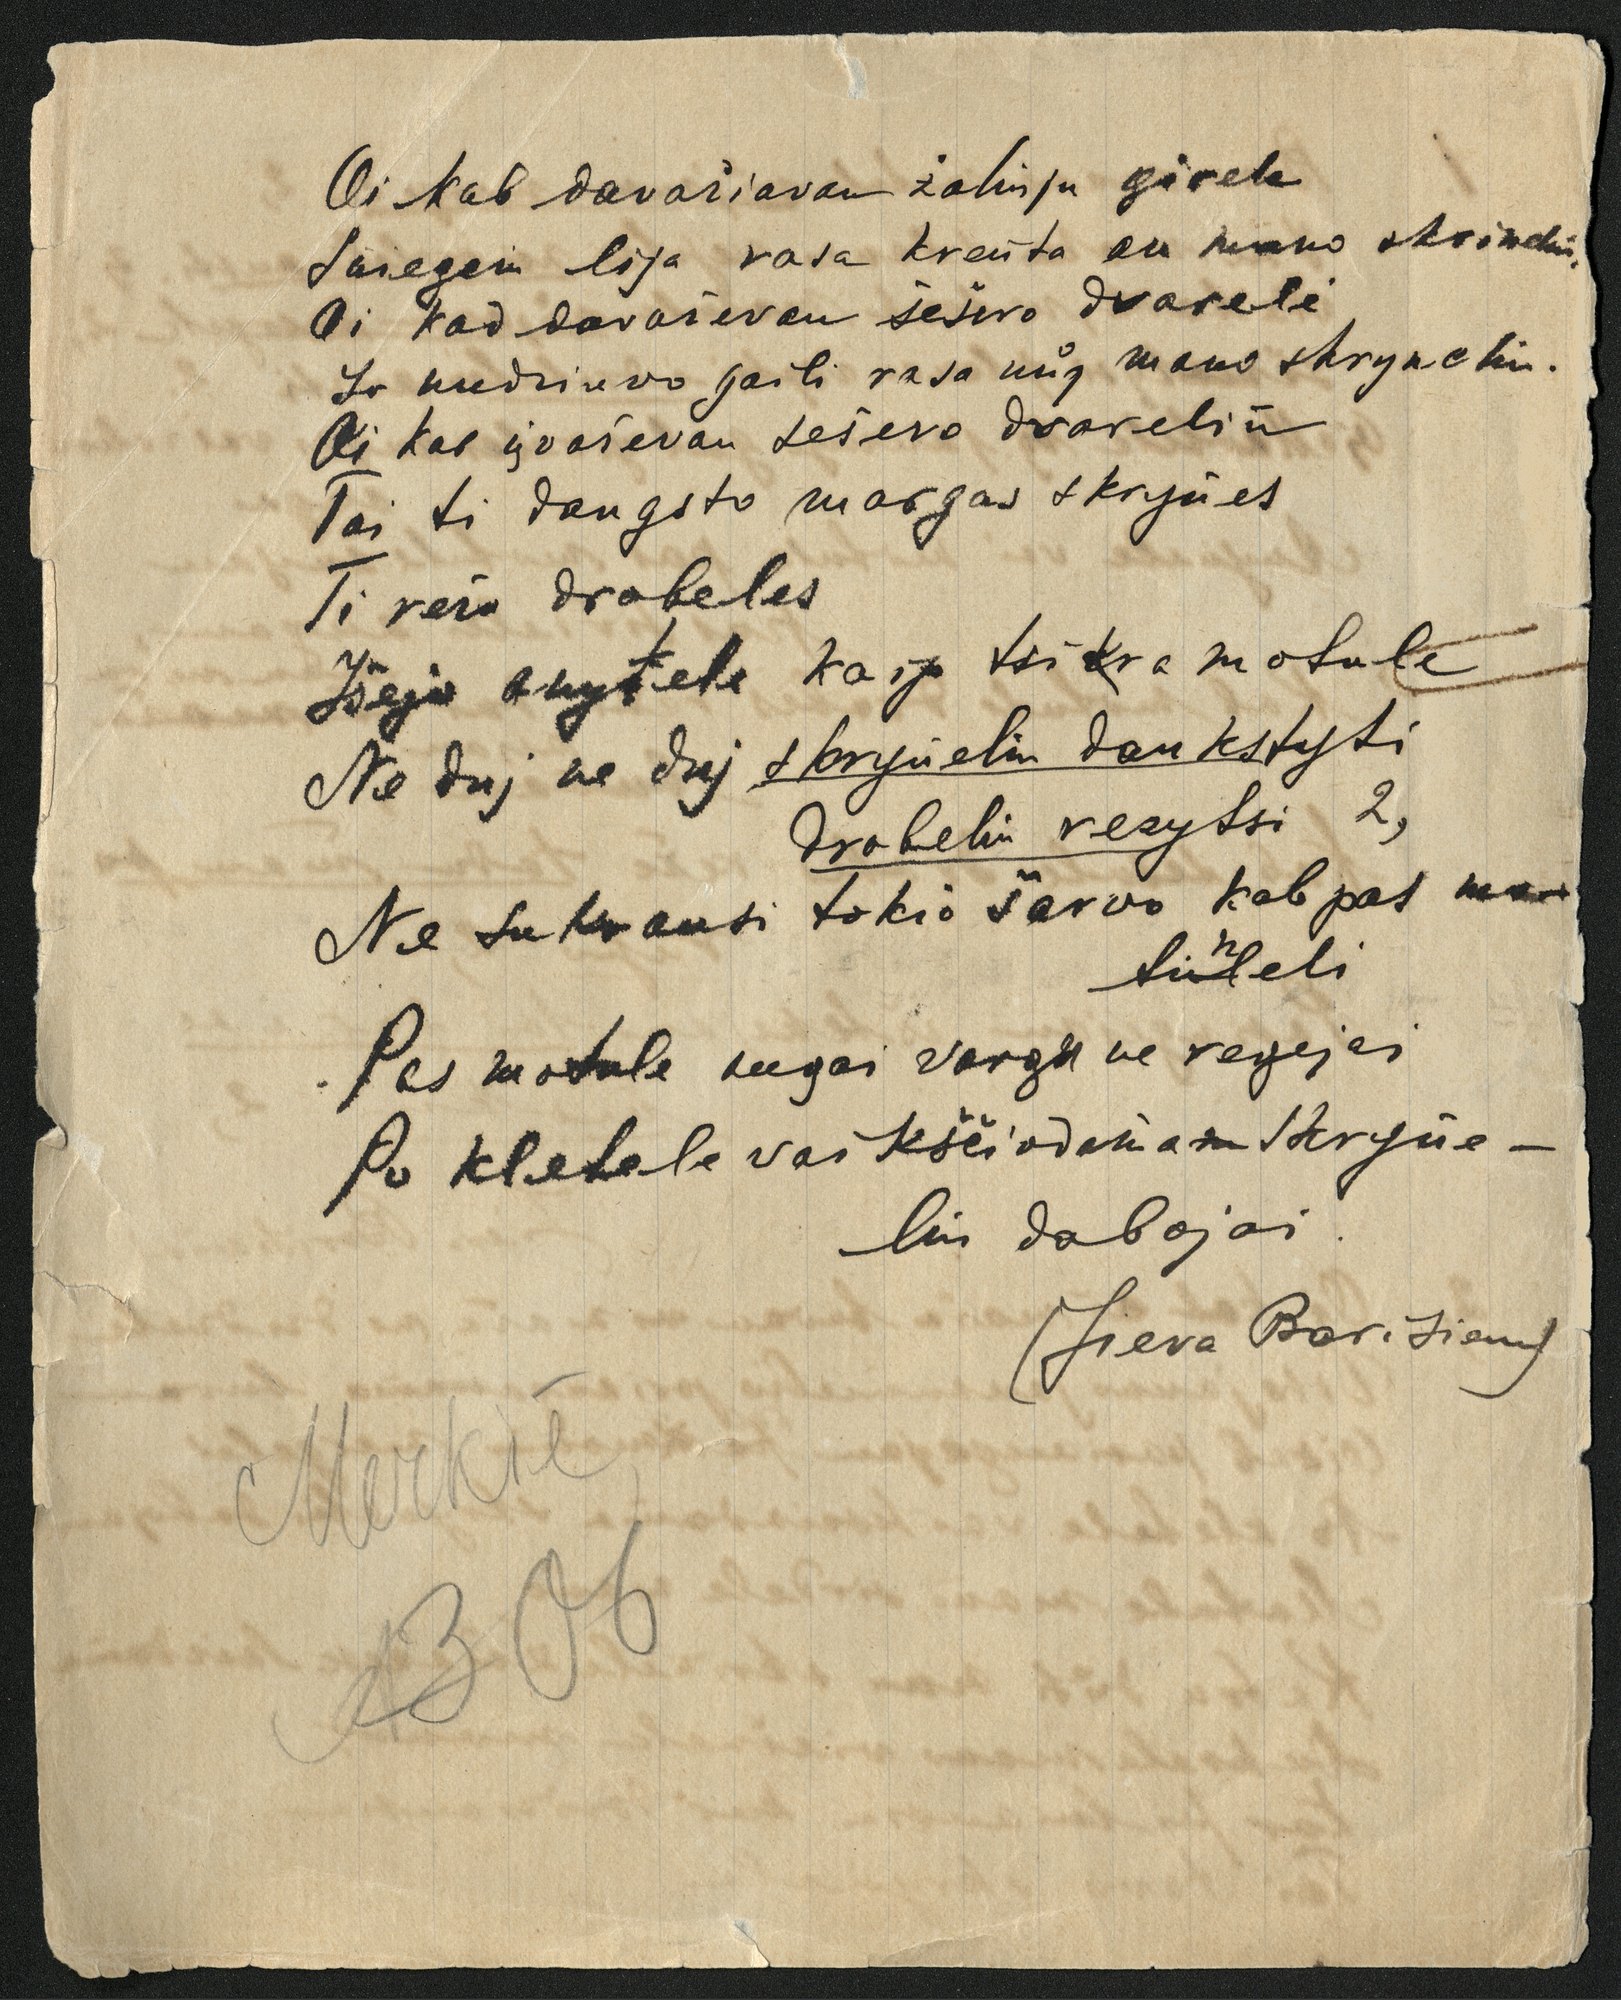 Oi kab davažiavau žalinju girele
Sniegem lija rasa krenta an mano skrinelin.
Oi kad davaževau šeširo dvareli
Ir nudzinvo gaili rasa nūg mano skrynelin.
Oi kab įvaževau šešero dvarelin
Tai ti dangsto margas skrynes
Ti reža drabeles
Išėjo anytele kaip tsikra motule
Ne duj ne duj skrynelin dankstyti
drobelin rezytsi 2,
Ne sukrausi tokio šarvo kab pas mo
tinėli
Pas motule augai vargu ne regejai
Po kletele vaikščiodamam skryne-
lin dabojai.
(Jieva Barisienė)
Merkinė
AB 06